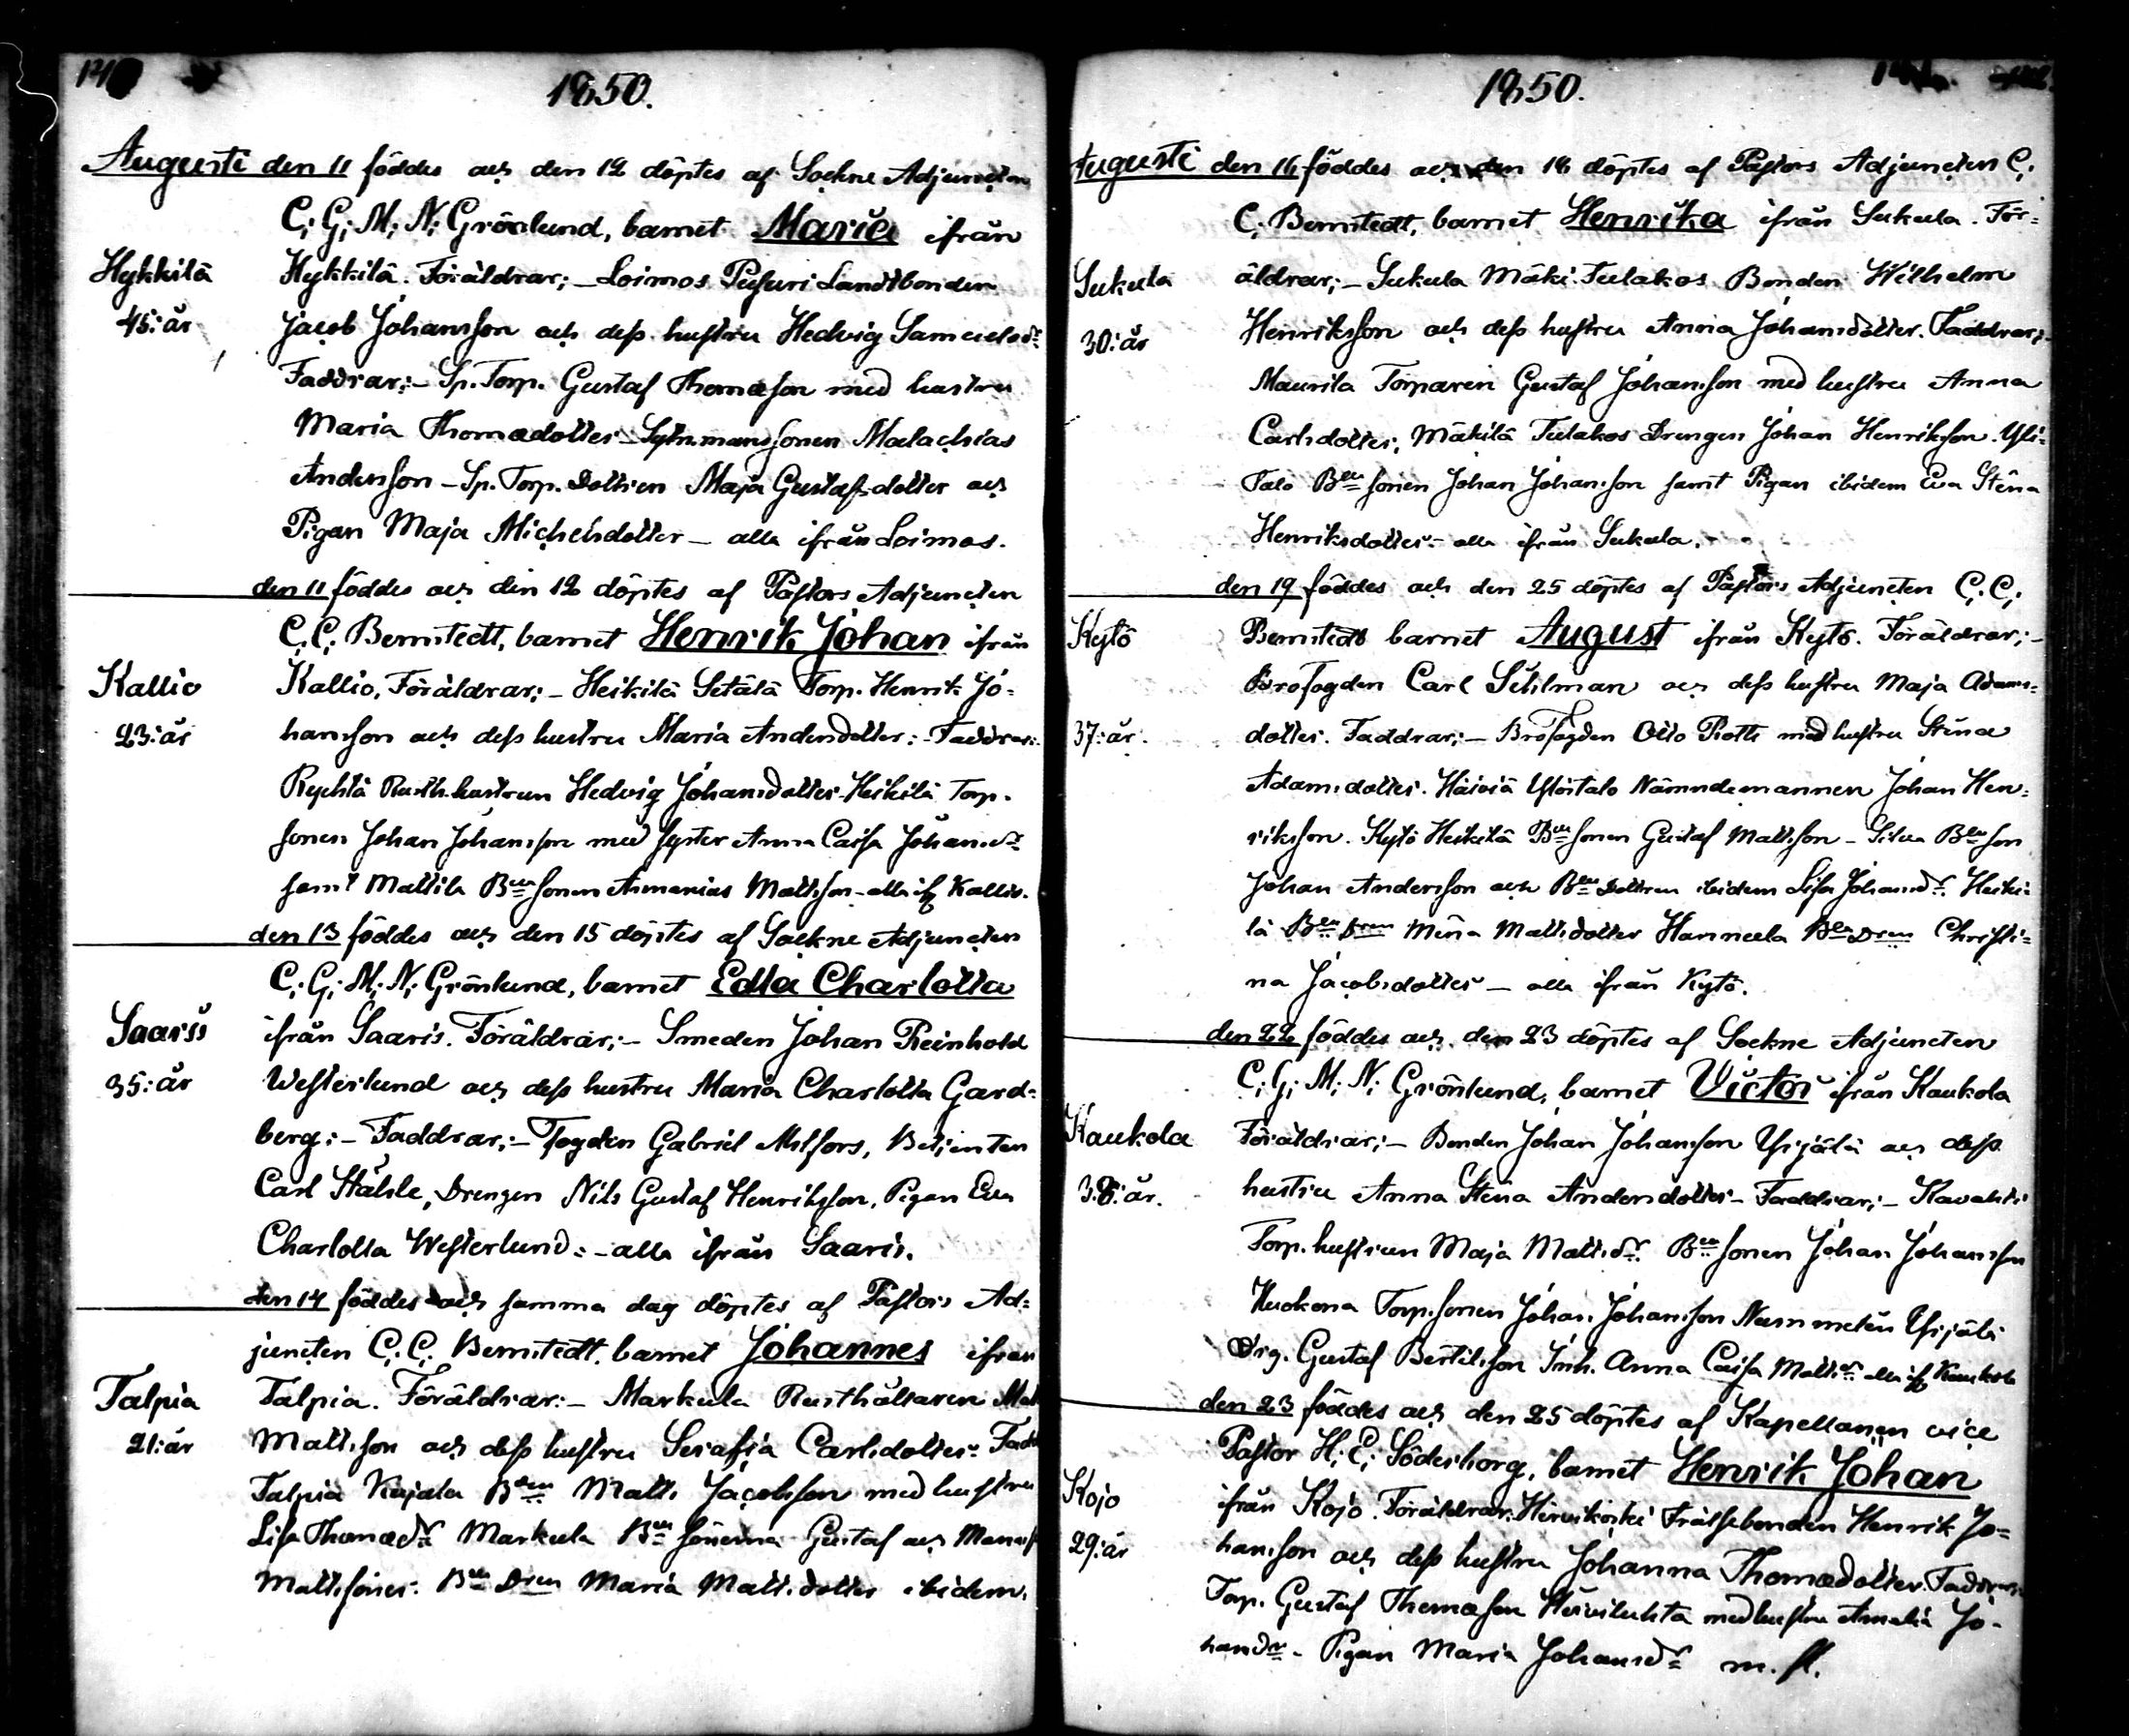 1850.
Augusti den 11 föddes och den 12 döptes af Sockne Adjuncten
C; G; M; N; Grönlund, barnet Maria ifrån
Hykkilä Hykkilä. Föräldrar; - Loimos Pusuri Landtbonden
45: år Jacob Johansson och dess hustru Hedvig Samuelsdr
Faddrar; - Sp. Torp. Gustaf Thomasson med hustru
Maria Thomædotter - Sexmanssonen Malachias
Andersson - Sp. Torp. Dottren Maja Gustafsdotter och
Pigan Maja Michelsdotter - alla ifrån Loimos.
den 11 föddes och den 12 döptes af Pastors Adjuncten
C; C; Bernstedt, barnet Henrik Johan ifrån
Kallio Kallio, Föräldrar; - Heikilä Setälä Torp. Henrik Jo=
23: år hansson och dess hustru Maria Andersdotter: - Faddrar:
Rychtä Rusth. hustrun Hedvig Johansdotter Heikilä Torp.
sonen Johan Johansson med syster Anna Caisa Johansdr
samt Mattila Bdesonen Ananias Mattsson - alla if Kallio.
den 13 föddes och den 15 döptes af Sockne Adjuncten
C; G; M; N; Grönlund, barnet Edla Charlotta
Saaris ifrån Saaris. Föräldrar; - Smeden Johan Reinhold
35: år Westerlund och dess hustru Maria Charlotta Gard=
berg: - Faddrar; - Fogden Gabriel Milfors, Betjenten
Carl Ståhle, Drengen Nils Gustaf Henriksson, Pigan Eva
Charlotta Westerlund: - alla ifrån Saaris.
den 14 föddes och samma dag döptes af Pastors Ad=
juncten C; C; Bernstedt, barnet Johannes ifrån
Talpia Talpia. Föräldrar: - Markula Rusthållaren
21: år Mattsson och dess hustru Serafia Carlsdotter:
Talpia Kujala Bden Matts Jacobsson med hustru
Lisa Thomædr Markula Bde sönerna Gustaf och
Mattssöner: Bde Dren Maria Mattsdotter ibidem.
1850.
Augusti den 16 föddes och den 18 döptes af Pastors Adjuncten C;
C; Bernstedt, barnet Henrika ifrån Sukula. För=
Sukula äldrar; - Sukula Mäki-Tulakos Bonden Wilhelm
30: år Henriksson och dess hustru Anna Johansdotter. Faddrar;
Maurila Torparen Gustaf Johansson med hustru Anna
Carlsdotter, Mäkilä Tulakos Drengen Johan Henriksson. Yli=
Talo Bde sonen Johan Johansson samt Pigan ibidem Eva Stina
Henriksdotter - alla ifrån Sukula.
den 19 föddes och den 25 döptes af Pastors Adjuncten C; C;
Kytö Bernstedt barnet August ifrån Kytö. Föräldrar; -
Brofogden Carl Sililman och dess hustru Maja Adams=
37: år. dotter. Faddrar; - Brofogden Otto Rotti med hustru Stina
Adamsdotter. Häiviä Ylöstalo Nämndemannen Johan Hen=
riksson. Kytö Heikilä Bde sonen Gustaf Mattsson - Bde son
Johan Andersson och Bde Dottren ibidem Lisa Johansdr. Heiki=
lä Bde Dren Mina Mattsdotter Hannula Bde Dren Christi=
na Jacobsdotter - alla ifrån Kytö.
den 22 föddes och den 23 döptes af Sockne Adjuncten
C; G; M; N; Grönlund, barnet Victor ifrån Kaukola
Kaukola Föräldrar; - Bonden Johan Johansson Yrjälä och dess
38: år. hustru Anna Stina Andersdotter - Faddrar; -
Torp. hustrun Maja Mattsdr. Bde sonen Johan Johansson
Kuokona Torp. sonen Johan Johansson Nummelin Yrjälä
Drg. Gustaf Bertilsson Inh. Anna Caisa Mattsdr. alla if Kaukola
den 23 föddes och den 25 döptes af Kapellanen vice
Pastor H; C; Söderborg, barnet Henrik Johan
Kojo ifrån Kojo. Föräldrar: Hirvikoski Frälsebonden Henrik Jo=
29: år hansson och dess hustru Johanna Thomædotter. Faddrar:
Torp. Gustaf Thomasson Hirviluhta med hustru Amalia Jo=
hansdr - Pigan Maria Johansdr m. fl.